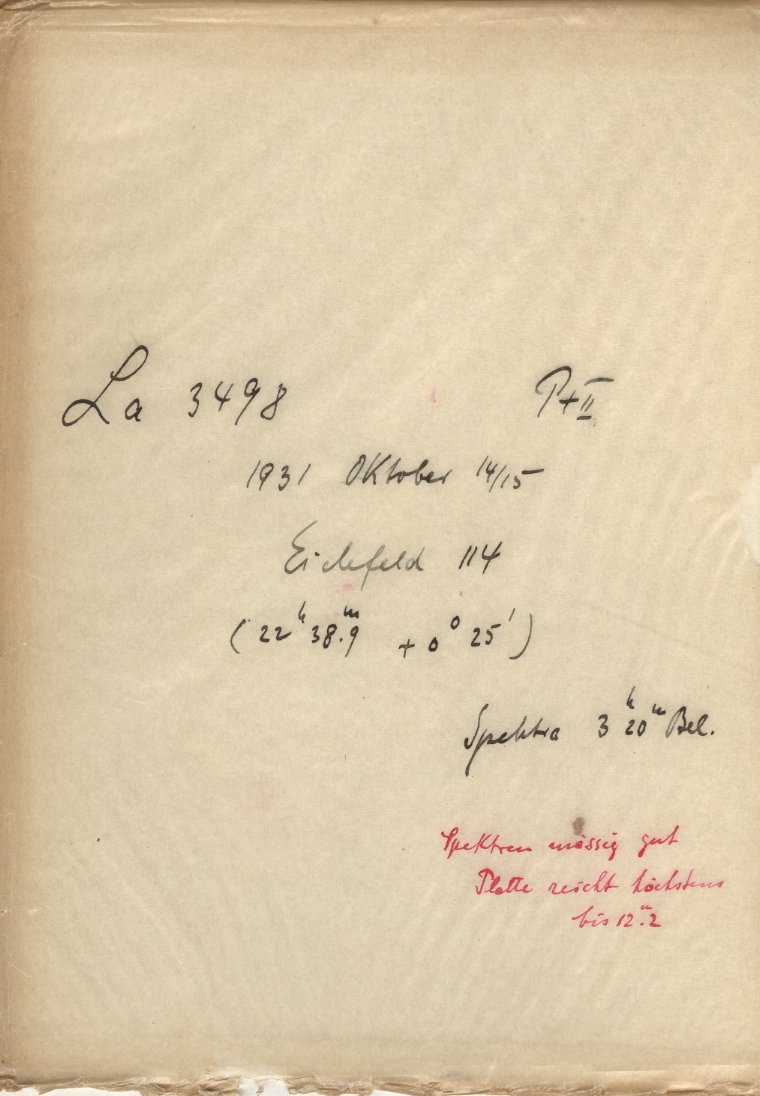 La 3498 P+II
1931 Oktober 14/15
Eichfeld 114
(22ʰ 38.ᵐ9 + 0° 25')
Spektra 3ʰ 20ᵐ Bel.
Spektren mässig gut
Platte reicht höchstens
bis 12.ᵐ2